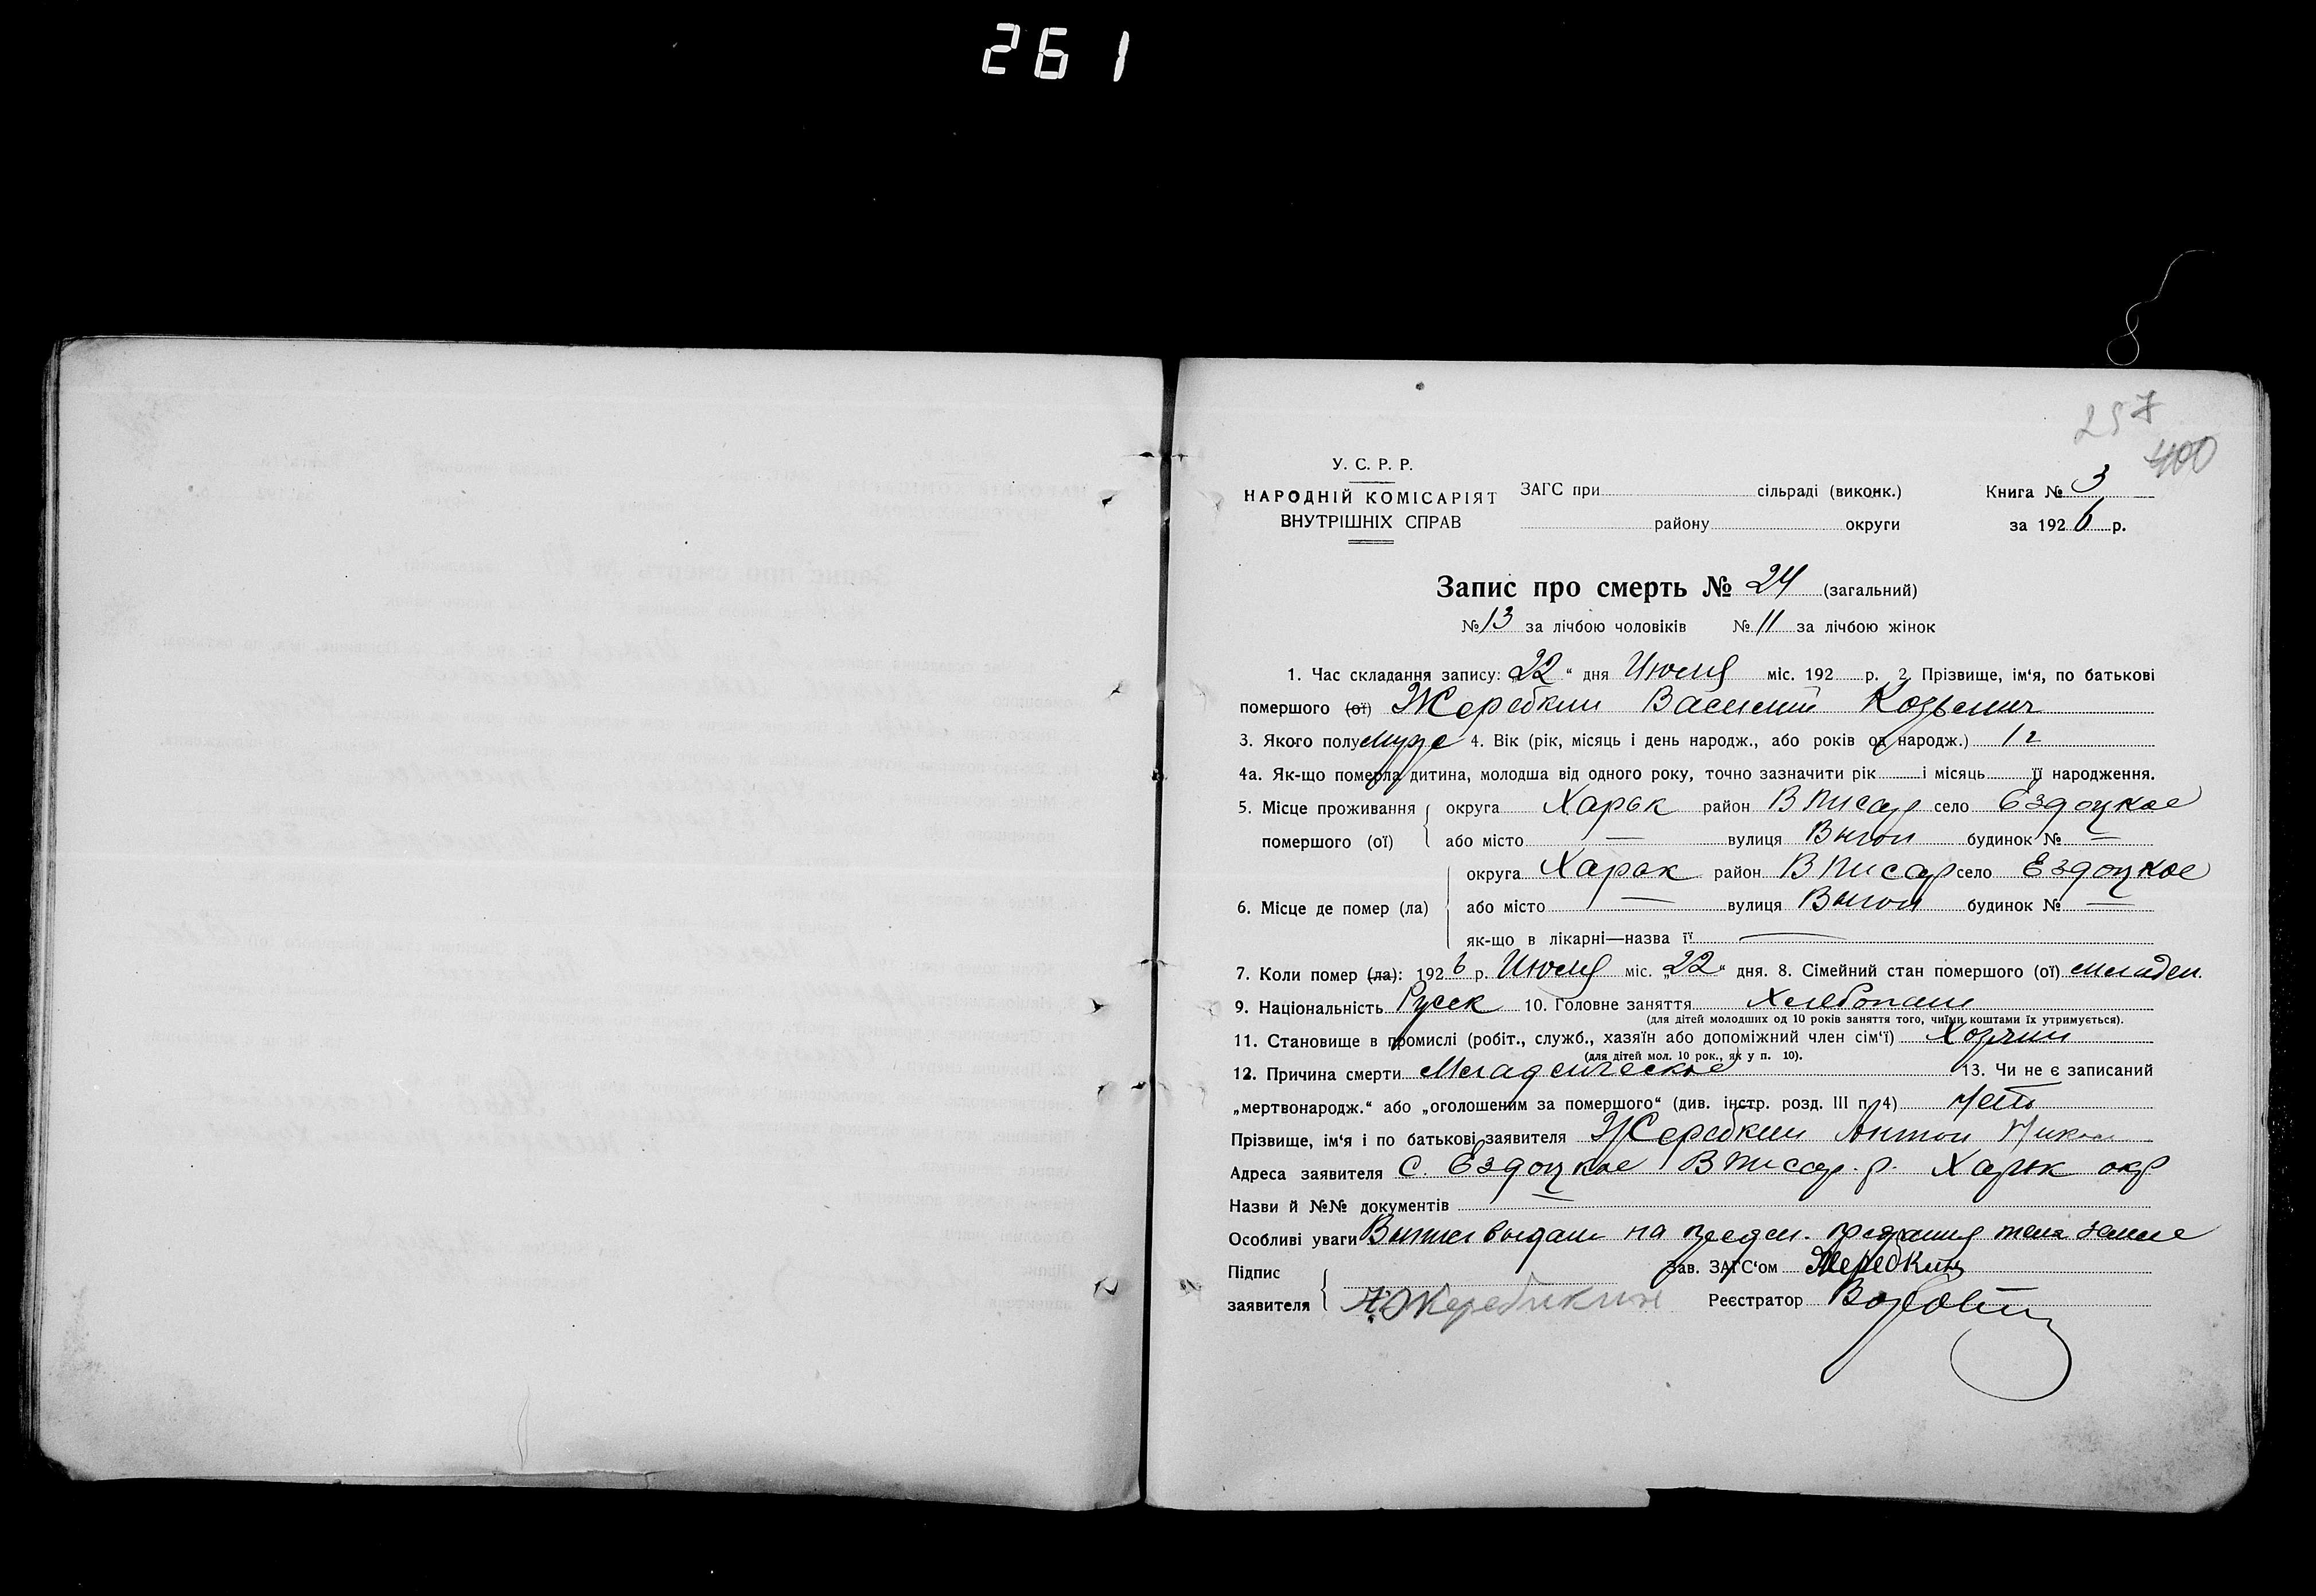 261
257
400
У. С. Р. Р.
НАРОДНІЙ КОМІСАРІЯТ
ВНУТРІШНІХ СПРАВ
ЗАГС при сільраді (виконк.)
району округи
Книга № 3
за 1926 р.
Запис про смерть № 24 (загальний)
№ 13 за лічбою чоловіків № 11 за лічбою жінок
1. Час складання запису: „22“ дня Июля міс. 192 р. 2. Прізвище, ім‘я, по батькові
помершого (ої) Жеребкин Василий Козьмич
3. Якого полу муж 4. Вік (рік, місяць і день народж., або років од народж.) 1 г
4а. Як-що померла дитина, молодша від одного року, точно зазначити рік і місяць її народження.
5. Місце проживання помершого (ої)
округа Харьк район В Писар село Ездоцкое
або місто — вулиця Выгон будинок № —
6. Місце де помер (ла)
округа Харьк район В Писар село Ездоцкое
або місто — вулиця Выгон будинок № —
як-що в лікарні—назва її —
7. Коли помер (ла): 1926 р. Июля міс. „22“ дня. 8. Сімейний стан помершого (ої) младен.
9. Національність Руск 10. Головне заняття Хлебопаш
(для дітей молодших од 10 років заняття того, чиїми коштами їх утримується).
11. Становище в промислі (робіт., служб., хазяїн або допоміжний член сім‘ї)
(для дітей мол. 10 рок., як у п. 10).
12. Причина смерти Младенческое 13. Чи не є записаний
„мертвонародж.“ або „оголошеним за помершого“ (див. інстр. розд. III п. 4) Нет
Прізвище, ім‘я і по батькові заявителя Жеребкин Антон Никол
Адреса заявителя С. Ездоцкое В Писар. р. Харьк окр
Назви й №№ документів —
Особливі уваги выдан на предм. предания тела земле
Підпис заявителя А. Жеребикин
Зав. ЗАГС‘ом Жеребкин
Реєстратор